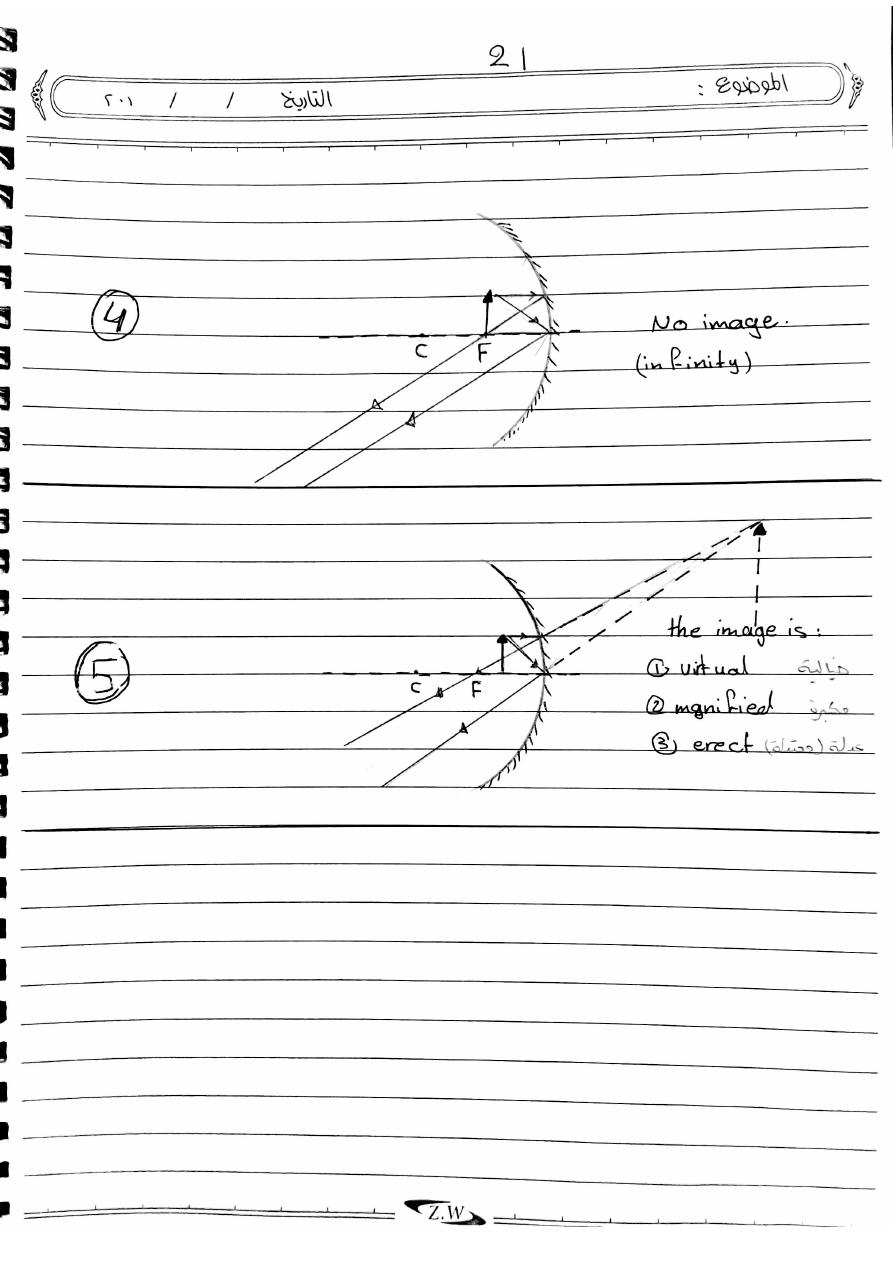 21
الموضوع :
التاريخ / / ٢٠١
4
C F
No image.
(infinity)
5
C F
the image is :
① virtual خيالية
② mgnified مكبرة
③ erect
Z.W